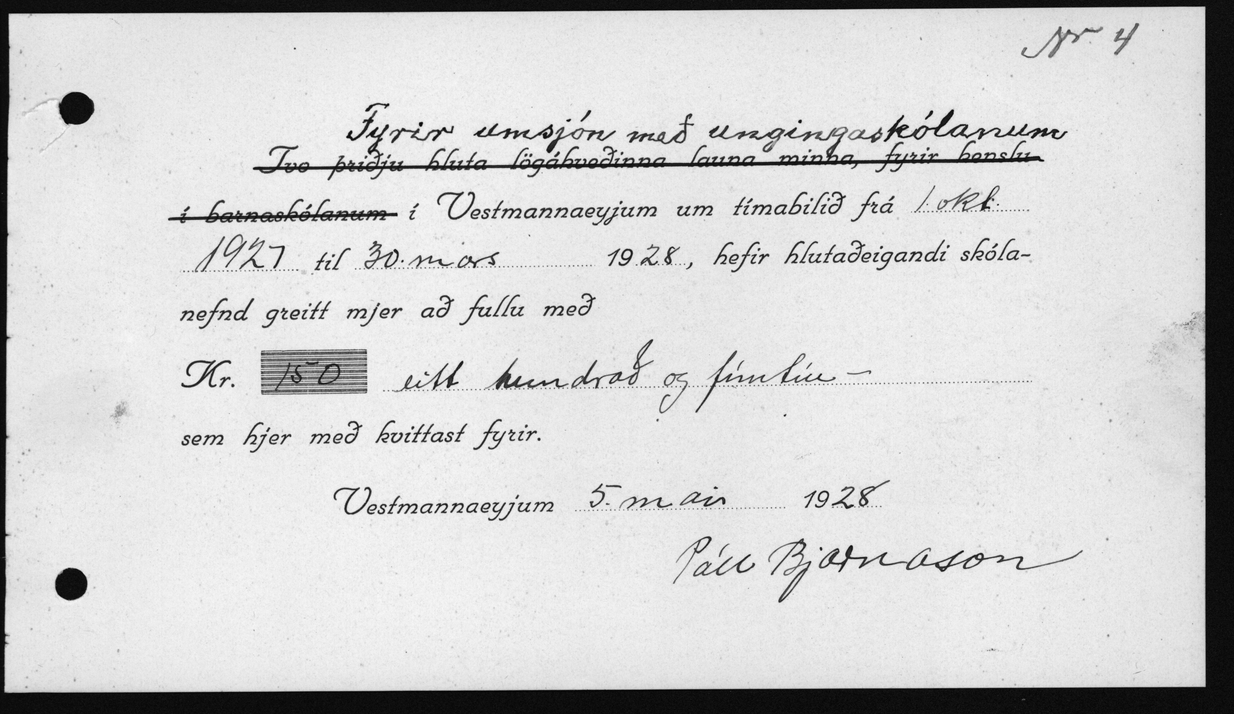 Nr 4
Fyrir umsjón með ungingaskólanum
Tvo þriðju hluta lögákveðinna launa minna, fyrir kenslu
í barnaskólanum í Vestmannaeyjum um tímabilið frá 1. okt.
1927 til 30. mars 1928, hefir hlutaðeigandi skóla-
nefnd greitt mjer að fullu með
Kr. 150 eitt hundrað og fimtíu –
sem hjer með kvittast fyrir.
Vestmannaeyjum 5. maí 1928
Páll Bjarnason